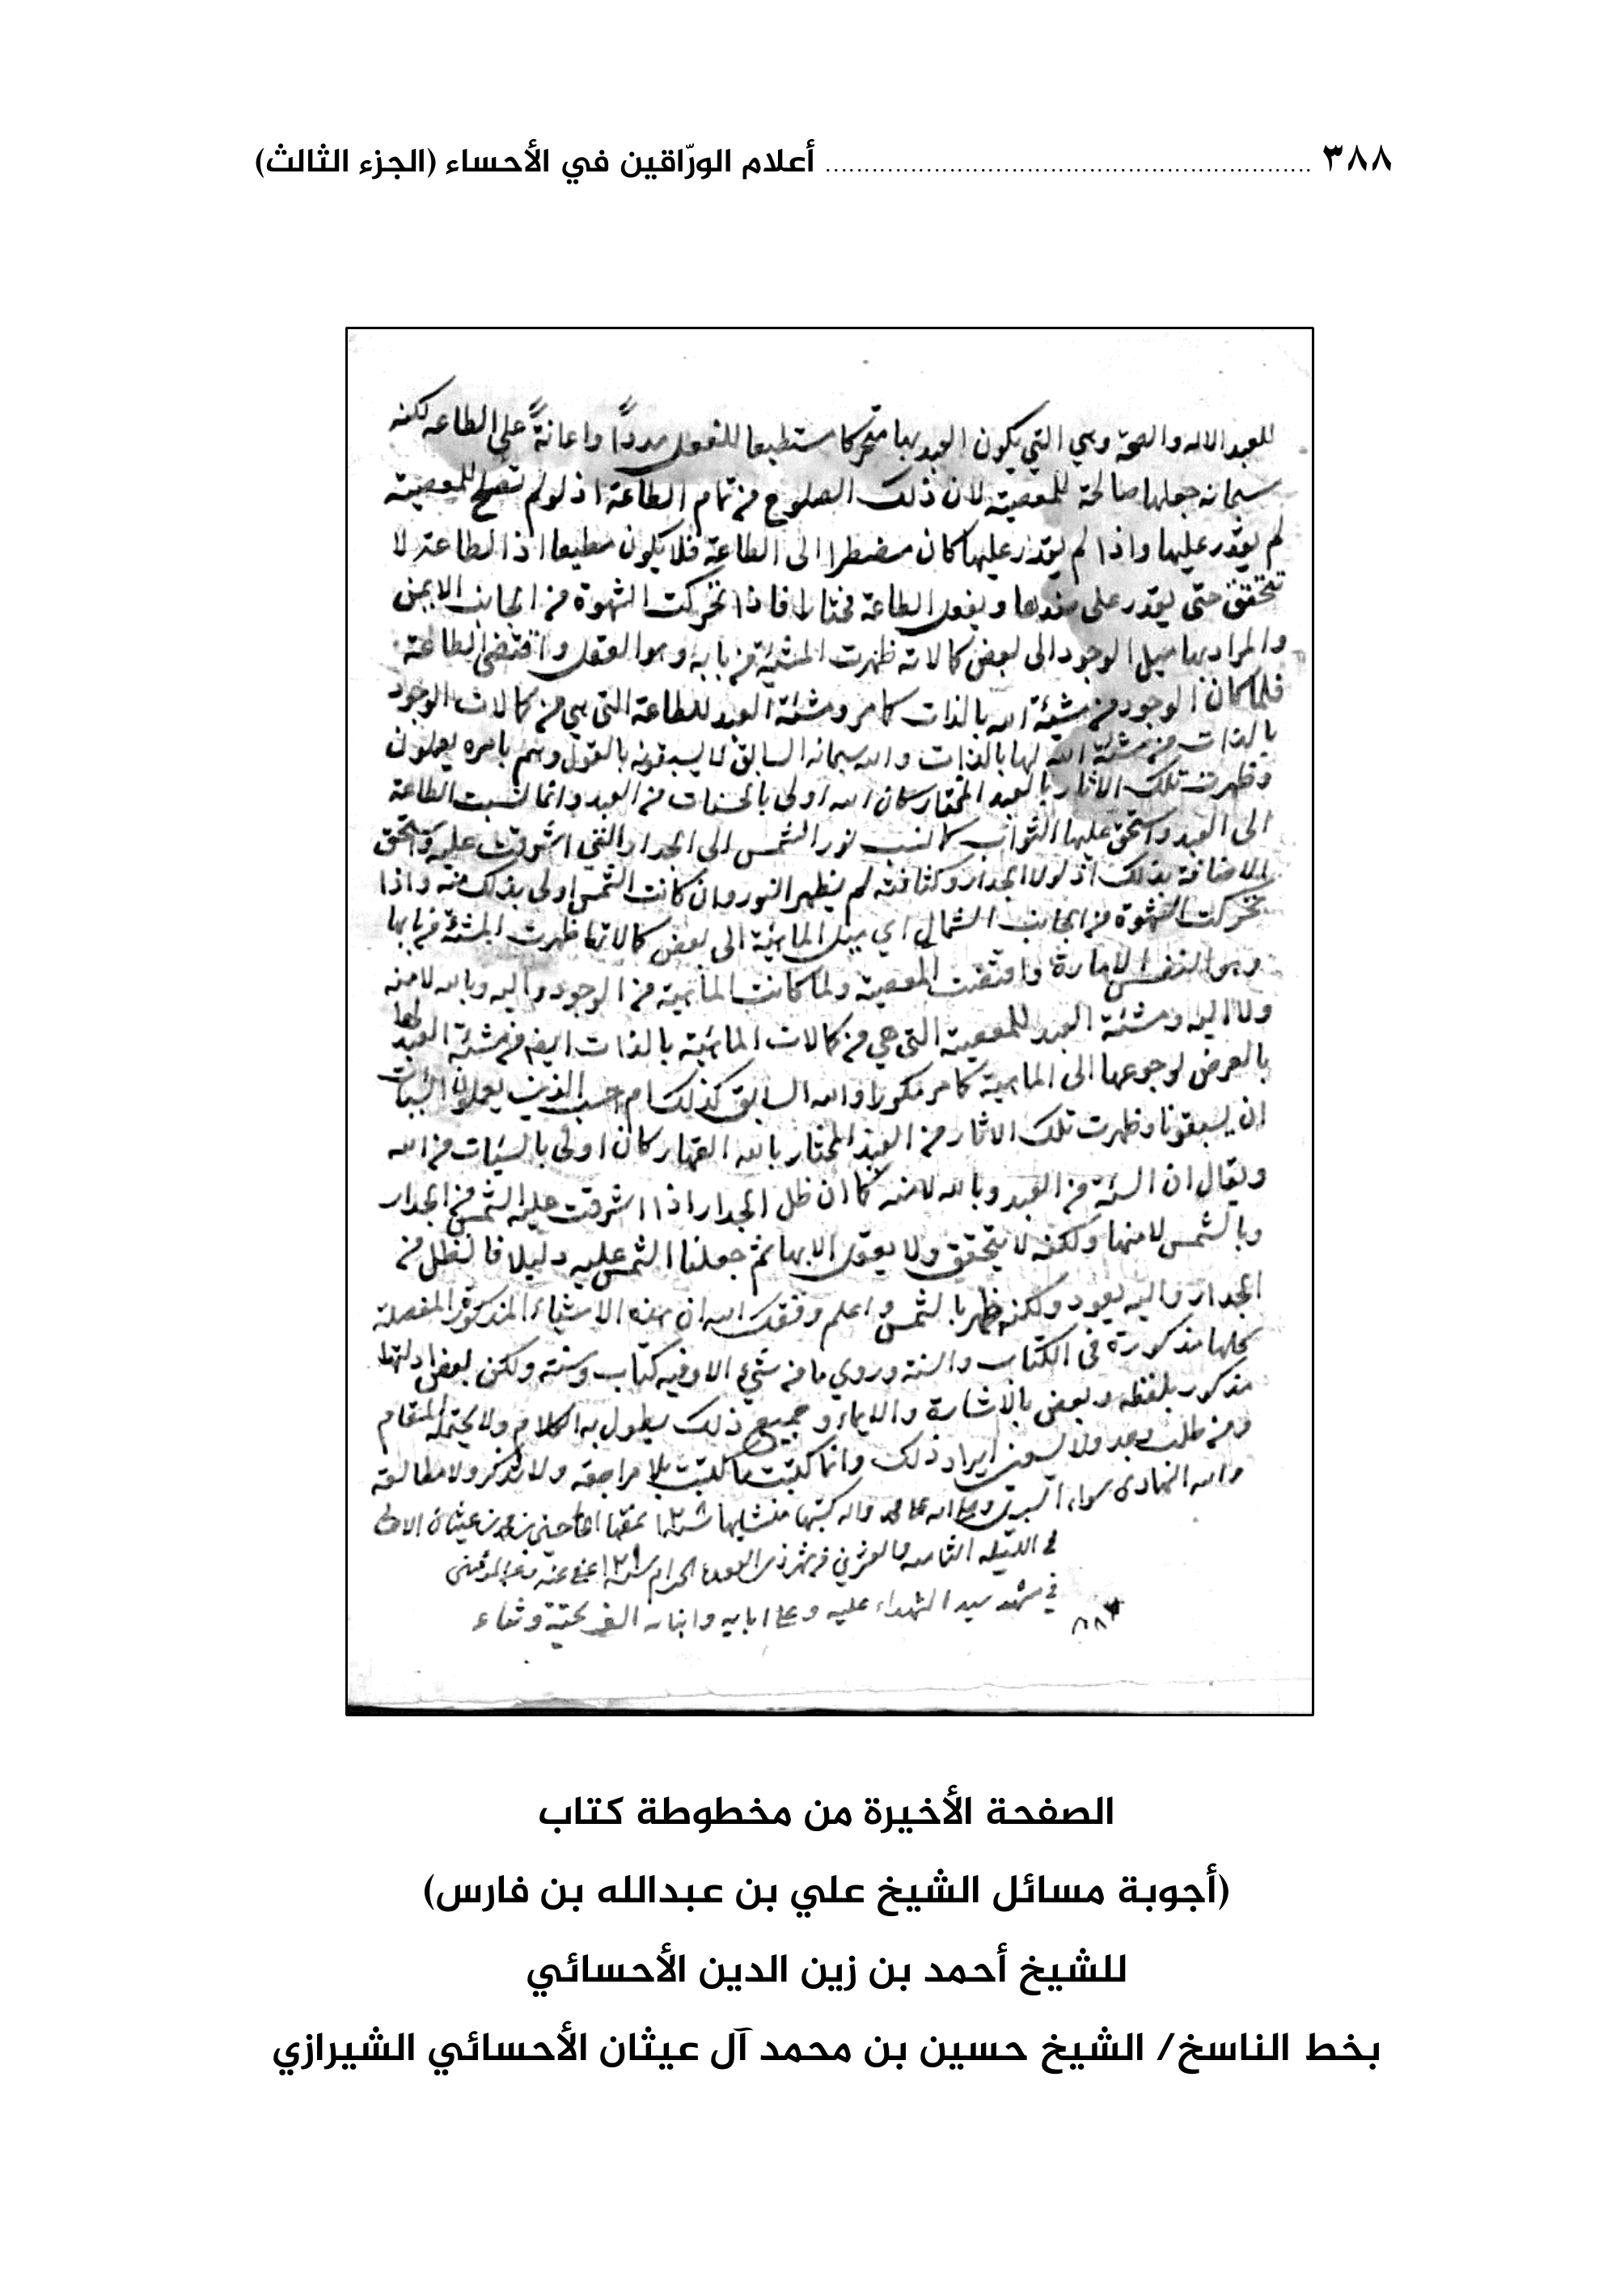 ٣٨٨ .............................. أعلام الورّاقين في الأحساء (الجزء الثالث)
للعبد الاله والصحة وهي التي يكون العبد بها متحركا مستطيعا للفعل مددًا واعانةً على الطاعه لكنه
سبحانه جعلها صالحة للمعصية لان ذلك الصلوح من تمام الطاعة اذ لو لم تصلح للمعصية
لم يقدر عليها واذا لم يقدر عليها كان مضطرا الى الطاعة فلا يكون مطيعا اذ الطاعة لا
تتحقق حتى يقدر على ضدها ويفعل الطاعة مختارا فاذا تحركت الشهوة من الجانب الايمن
والمراد بها ميل الوجود الى بعض كمالاته ظهرت المشية من بابه وهو العقل واقتضى الطاعة
فلما كان الوجود من مشيئة الله بالذات كما مر ومشئة العبد للطاعة التي هي من كمالات الوجود
بالذات من مشئة الله لها بالذات والله سبحانه السابق لا يسبقونه بالقول وهم بامره يعملون
وظهرت تلك الاثار بالعبد المختار كان الله اولى بالحسنات من العبد وانما نسبت الطاعة
الى العبد واستحق عليها الثواب كما نسب نور الشمس الى الجدار التي اشرقت عليه واستحق
الاضافة بذلك اذ لولا الجدار وكثافته لم يظهر النور وان كانت الشمس اولى بذلك منه واذا
تحركت الشهوة من الجانب الشمال اي ميل الماهية الى بعض كمالاتها ظهرت المشئة من بابها
وهو النفس الامارة واقتضت المعصية ولما كانت الماهية من الوجود واليه وبالله لا منه
ولا اليه ومشئة العبد للمعصية التي هي من كمالات الماهية بالذات ايضا من مشئة العبد لها
بالعرض لوجوعها الى الماهية كما مر مكررا والله السابق كذلك ام احسب الذين يعملون السيئات
ان يسبقونا وظهرت تلك الاثار من العبد المختار بالله القهار كان اولى بالسيئات من الله
ويقال ان السئة من العبد وبالله لا منه كما ان ظل الجدار اذا اشرقت عليه الشمس من الجدار
وبالشمس لا منها ولكنه لا يتحقق ولا يعقل الا بها ثم جعلنا الشمس عليه دليلا فالظل من
الجدار واليه يعود ولكنه ظهر بالشمس واعلم وفقك الله ان هذه الاشياء المذكورة المفصلة
كلها مذكورة في الكتاب والسنة وروي ما من شيء الا وفيه كتاب وسنة ولكن بعض ادلتها
مذكور بلفظه وبعض بالاشارة والايماء وجميع ذلك يطول به الكلام ولا يحتمله المقام
ومن طلب وجد ولا يسعني ايراد ذلك وانما كتبت ما كتبت بلا مراجعة ولا تذكر ولا مطالعة
والله الهادي سواء السبيل وصلى الله على محمد واله كتبها منشيها بن محمد بن عيثان
في الليلة الثامنة والعشرين من شهر ذي القعدة الحرام عفي عنه وعن المؤمنين
في مشهد سيد الشهداء عليه وعلى ابايه وابنائه الف تحية وثناء
الصفحة الأخيرة من مخطوطة كتاب
(أجوبة مسائل الشيخ علي بن عبدالله بن فارس)
للشيخ أحمد بن زين الدين الأحسائي
بخط الناسخ/ الشيخ حسين بن محمد آل عيثان الأحسائي الشيرازي